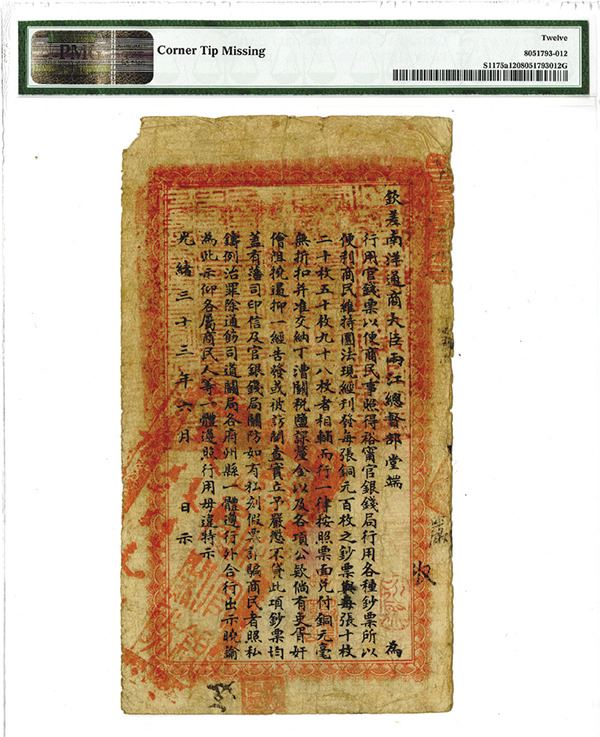 PMG
Corner Tip Missing
Twelve
8051793-012
S1175a1208051793012G
欽差南洋通商大臣兩江總督部堂端 為
行用官錢票以便商民事照得裕甯官銀錢局行用各種鈔票所以
便利商民維持圜法現經刊發每張銅元百枚之鈔票與每張十枚
二十枚五十枚九十八枚者相輔而行一律按照票面兌付銅元毫
無折扣并准交納丁漕關稅鹽課釐金以及各項公款倘有吏胥奸
儈阻撓遏抑一經告發或被訪聞查實立予嚴懲不貸此項鈔票均
蓋有藩司印信及官銀錢局關防如有私刻假票訛騙商民者照私
鑄例治罪除通飭司道關局各府州縣一體遵行外合行出示曉諭
為此示仰各屬商民人等一體遵照行用毋違特示
光緒三十三年六月 日示